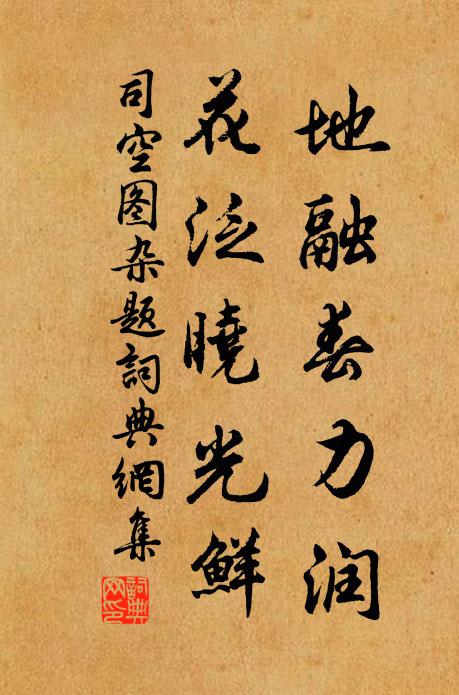 地融春力润
花泛曉光鮮
司空图杂题詞典網集
詞典网印